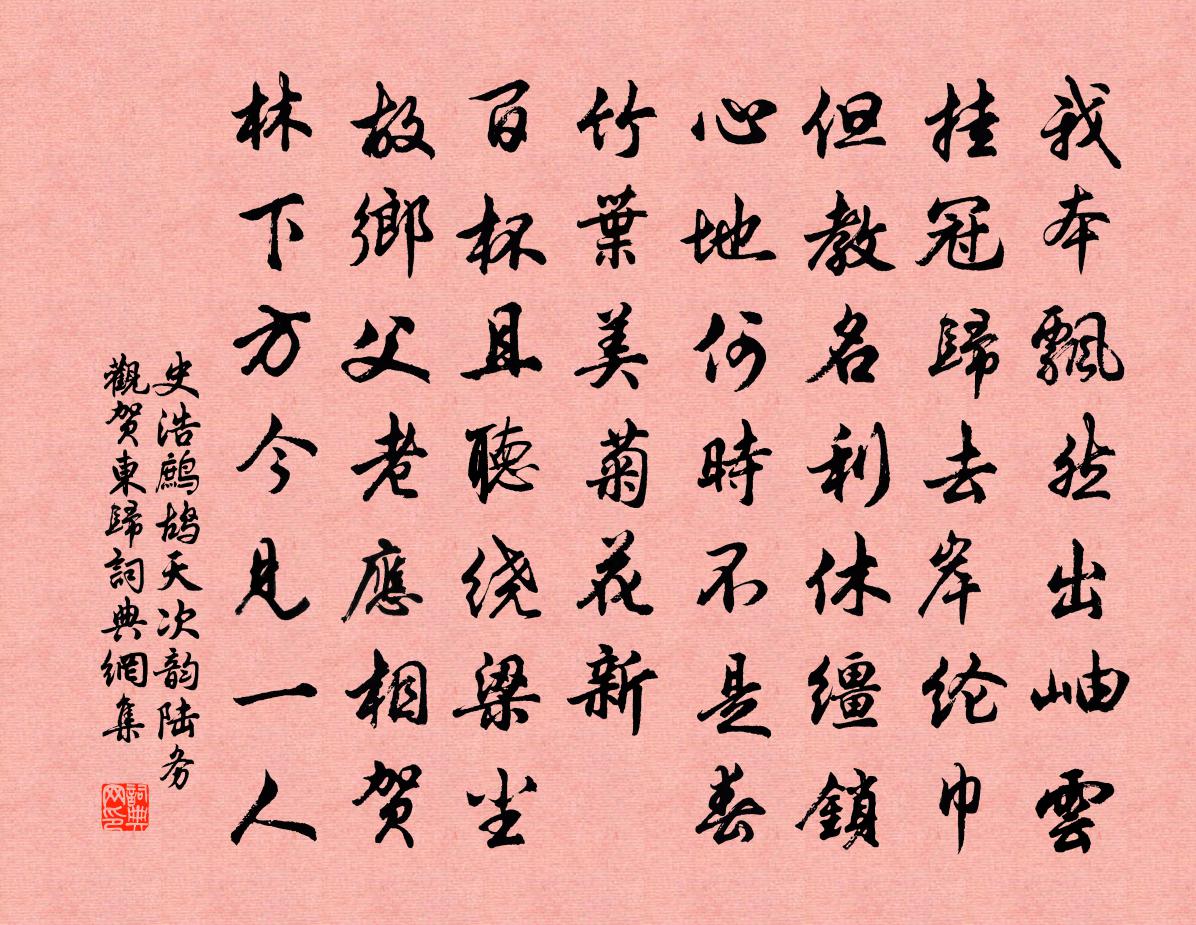 我本飄然出岫雲
挂冠歸去岸纶巾
但教名利休缰鎖
心地何時不是春
竹葉美菊花新
百杯且聽绕梁尘
故鄉父老應相贺
林下方今見一人
史浩鷓鸪天次韵陆务
觀贺東歸詞典網集
詞典
网印